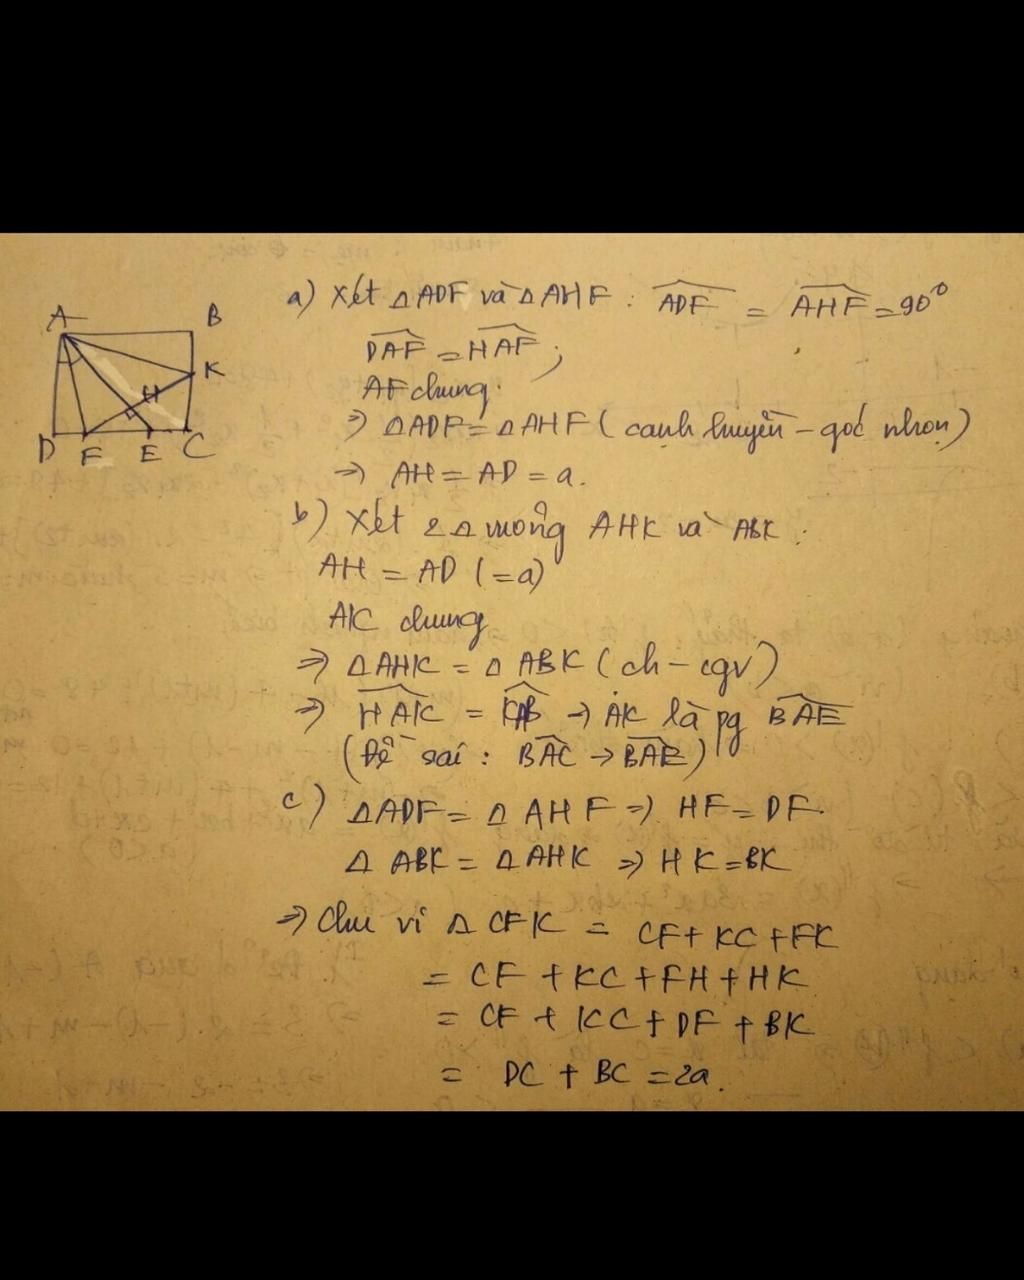 A
B
K
H
D
F
E
C
a) Xét △ADF và △AHF : ADF = AHF = 90°
DAF = HAF ;
AF chung.
⇒ △ADF = △AHF (cạnh huyền - góc nhọn)
⇒ AH = AD = a.
b) Xét 2 △ vuông AHK và ABK :
AH = AD (=a)
AK chung
⇒ △AHK = △ABK (ch - cgv)
⇒ HAK = KAB → AK là pg BAE
(Đề sai : BAC → BAE)
c) △ADF = △AHF ⇒ HF = DF.
△ABK = △AHK ⇒ HK = BK
⇒ Chu vi △CFK = CF + KC + FK
= CF + KC + FH + HK
= CF + KC + DF + BK
= DC + BC = 2a.